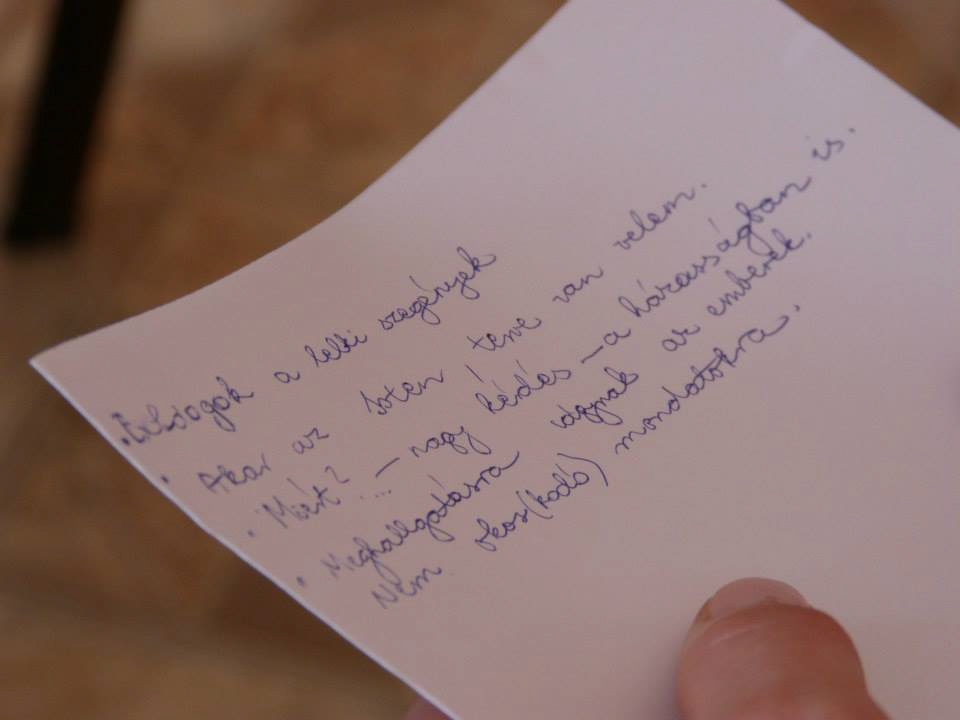 • Boldogok a lelki szegények
• Akar az Isten, terve van velem.
• Miért? ... – nagy kérdés – a házasságban is.
• Meghallgatásra vágynak az emberek.
Nem okos(kodó) mondatokra.